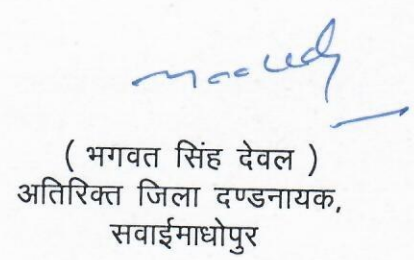 ( भगवत सिंह देवल )
अतिरिक्त जिला दण्डनायक,
सवाईमाधोपुर